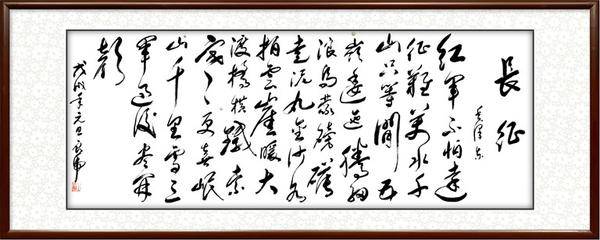 長征
毛澤东
红軍不怕遠
征難萬水千
山只等閒五
嶺逶迤騰細
浪烏蒙磅礴
走泥丸金沙水
拍雲崖暖大
渡橋横鐵索
寒更喜岷
山千里雪三
軍過後盡開
顏
戊戌年元旦